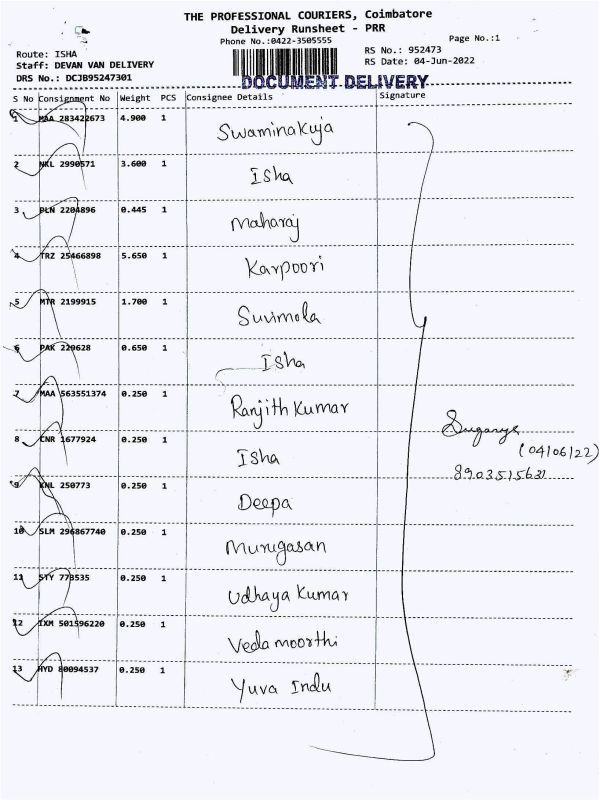 THE PROFESSIONAL COURIERS, Coimbatore
Delivery Runsheet - PRR
Phone No.:0422-3505555
Page No.:1
Route: ISHA
RS No.: 952473
Staff: DEVAN VAN DELIVERY
RS Date: 04-Jun-2022
DRS No.: DCJB95247301
DOCUMENT DELIVERY
S No Consignment No Weight PCS Consignee Details Signature
1 MAA 283422673 4.900 1 Swaminakuja
2 NKL 2990571 3.600 1 Isha
3 PLN 2204896 0.445 1 Maharaj
4 TRZ 25466898 5.650 1 Karpoori
5 MTR 2199915 1.700 1 Suvimola
6 PAK 229628 0.650 1 Isha
7 MAA 563551374 0.250 1 Ranjith Kumar
Suganya
8 CNR 1677924 0.250 1 Isha
(04/06/22)
9 KNL 250773 0.250 1 Deepa
10 SLM 296867740 0.250 1 Murugasan
11 STY 773535 0.250 1 Udhaya Kumar
12 IXM 501596220 0.250 1 Vedamoorthi
13 HYD 80094537 0.250 1 Yuva Indu